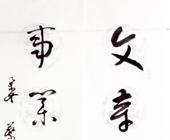 文章
事業